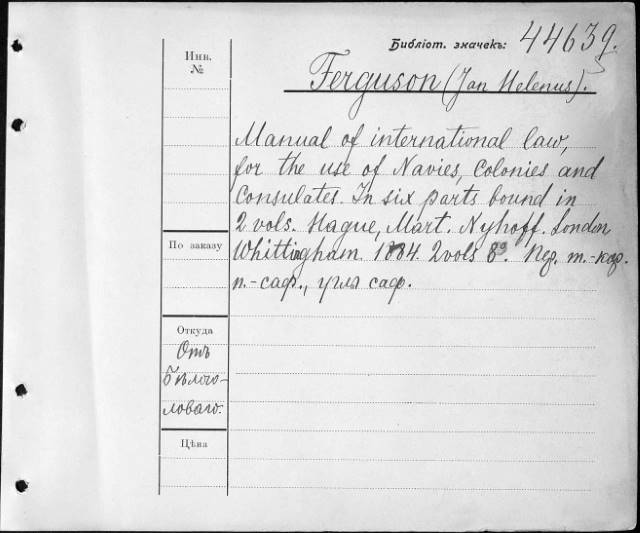 Библіот. значекъ: 44639.
Инв. №
Ferguson (Jan Helenus).
Manual of international law,
for the use of Navies, Colonies and
Consulates. In six parts bound in
2 vols. Hague, Mart. Nyhoff. London
Whittingham. 1884. 2 vols 8º. Пер. т.-кор.
п.-саф., угля саф.
По заказу
Откуда
Отъ
бѣлого-
ловаго.
Цѣна